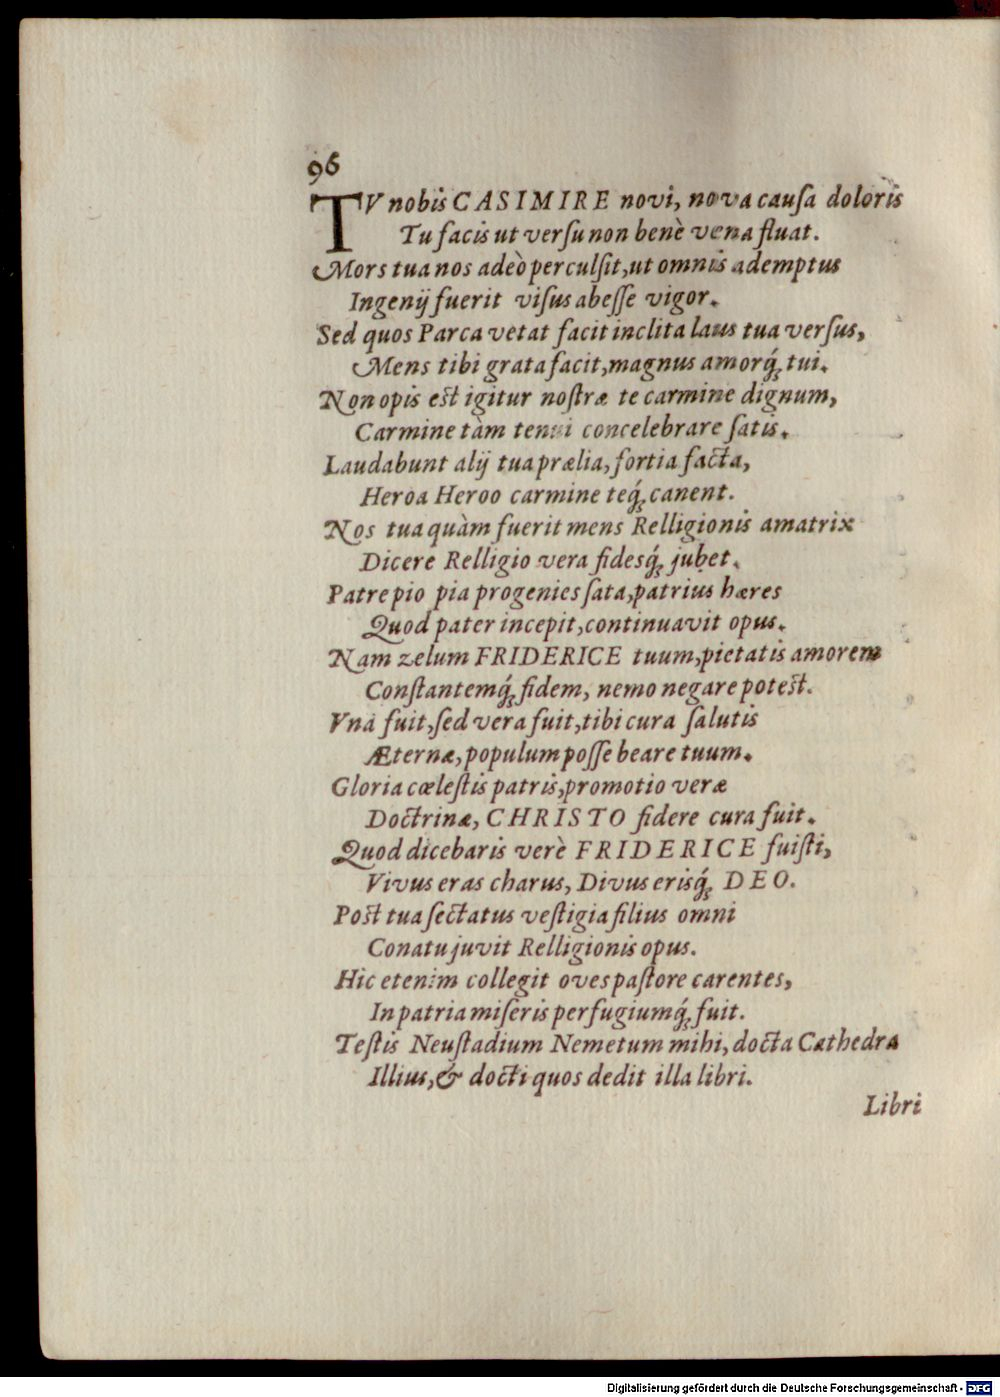 96
TV nobis CASIMIRE novi, nova cauſa doloris
Tu facis ut verſu non benè vena fluat.
Mors tua nos adeò perculſit, ut omnis ademptus
Ingenij fuerit viſus abeſſe vigor.
Sed quos Parca vetat facit inclita laus tua verſus,
Mens tibi grata facit, magnus amorq́; tui.
Non opis est igitur noſtræ te carmine dignum,
Carmine tàm tenui concelebrare ſatis.
Laudabunt alij tua prælia, fortia facta,
Heroa Heroo carmine teq́; canent.
Nos tua quàm fuerit mens Relligionis amatrix
Dicere Relligio vera fidesq́; jubet.
Patre pio pia progenies ſata, patrius hæres
Quod pater incepit, continuavit opus.
Nam zelum FRIDERICE tuum, pietatis amorem
Conſtantemq́; fidem, nemo negare potest.
Vna fuit, ſed vera fuit, tibi cura ſalutis
Æternæ, populum poſſe beare tuum.
Gloria cœleſtis patris, promotio veræ
Doctrinæ, CHRISTO fidere cura fuit.
Quod dicebaris verè FRIDERICE fuiſti,
Vivus eras charus, Divus erisq́; DEO.
Post tua ſectatus veſtigia filius omni
Conatu juvit Relligionis opus.
Hic etenim collegit oves paſtore carentes,
In patria miſeris perfugiumq́; fuit.
Teſtis Neuſtadium Nemetum mihi, docta Cathedra
Illius, & docti quos dedit illa libri.
Libri
Digitalisierung gefördert durch die Deutsche Forschungsgemeinschaft - DFG